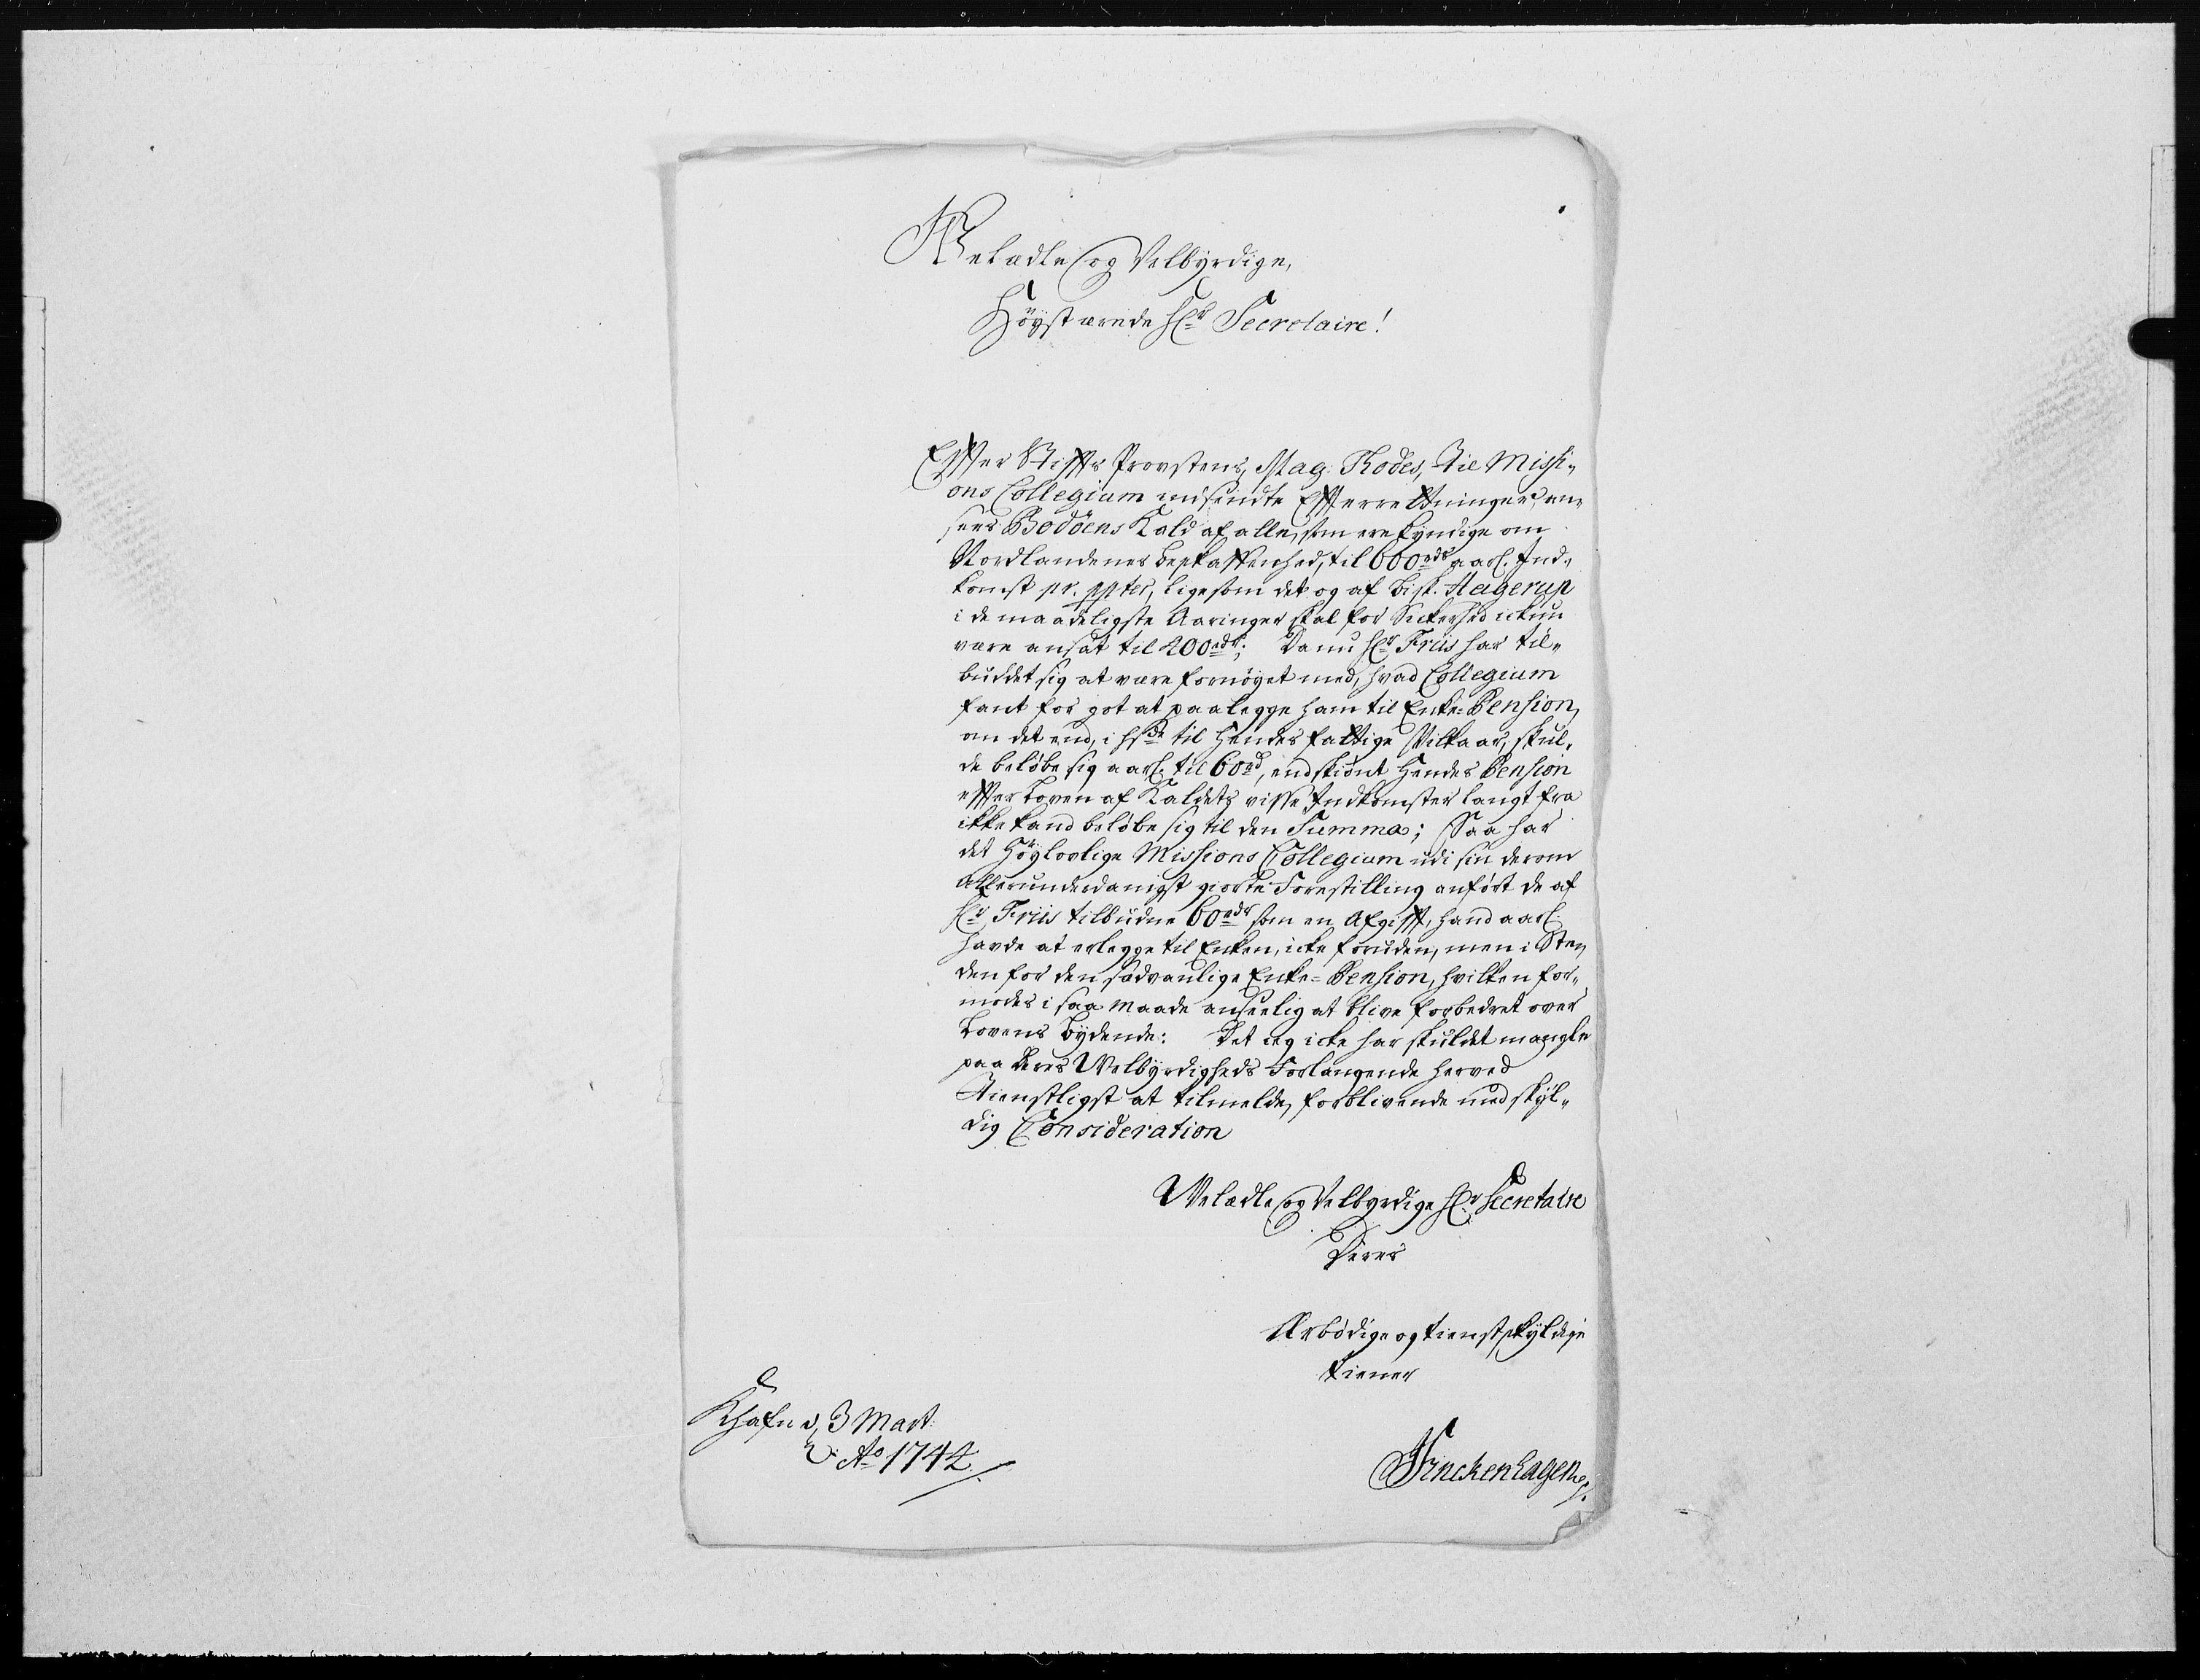 Velædle og Velbyrdige,
Höystærede Hr Secretaire!
Effter Stiffts Provstens, Mag: Rodes, til Missi-
ons Collegium indsendte Effterrettninger, an-
sees Bodöens Kald af alle, som ere kyndige om
Nordlandenes beskaffenhed, til 600 rdr aarl. Ind-
komst pr. ppter, ligesom det og af Bisp. Hagerup
i de maadeligste Aaringer skal for Sickerhed ickun
være ansat til 200 rdr; Da nu Hr Friis har til-
buddet sig at være fornöyet med, hvad Collegium
fant for got at paalegge ham til Enke-Pension,
om det end, i hsde til Hendes fattige Vilkaar, skul-
de belöbe sig aarl. til 60 rd, endskiönt Hendes Pension
effter Loven af Kaldets visse Indkomster langt fra
ikke kand belöbe sig til den Summa; Saa har
det Höylovlige Missions Collegium udi sin derom
allerunderdanigst giorte Forestilling anfört de af
Hr Friis tilbudne 60 rdr som en Afgifft, hand aarl.
havde at erlegge til Enken, icke foruden, men i Ste-
den for den sædvanlige Enke-Pension, hvilken for-
modes i saa maade anseelig at blive forbedret over
Lovens bydende: Det ieg icke har skuldet mangle
paa Deres Velbyrdigheds Forlangende herved
tienstligst at tilmelde, forblivende med skyl-
dig Consideration
Velædle og Velbyrdige Hr Secretaire
Deres
Ærbödige og tienstskyldige
tiener
Khafn d, 3 Mart:
Ao 1742.
Finckenhagen